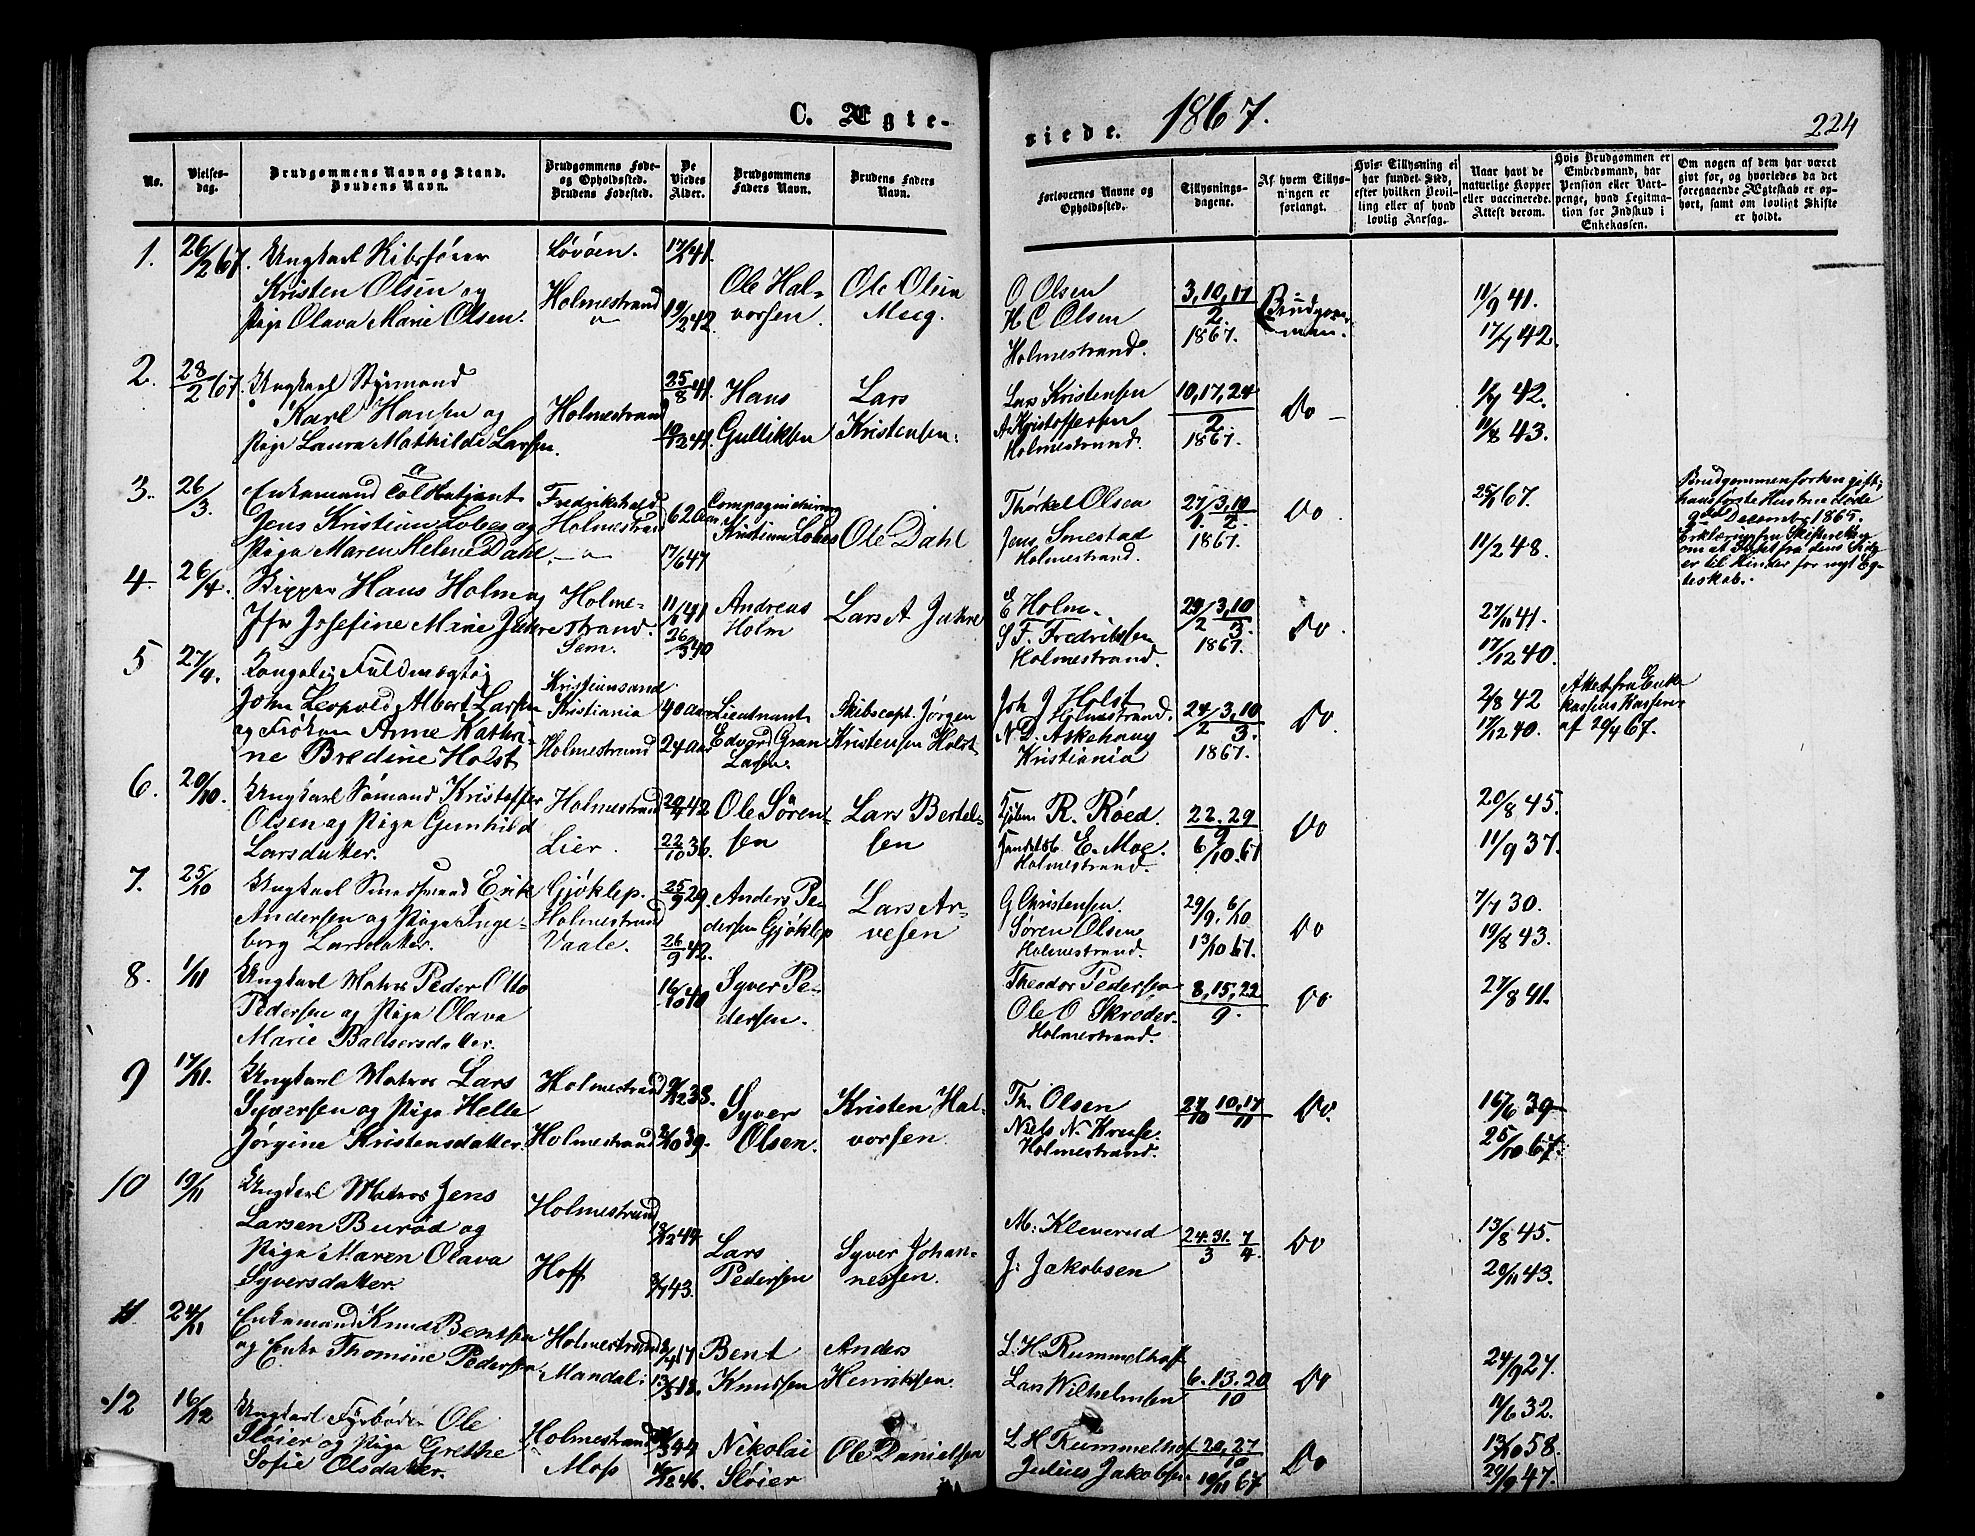 C. Ægte-
viede. 1867.
224
No.
Vielses-
dag.
Brudgommens Navn og Stand.
Brudens Navn.
Brudgommens Føde-
og Opholdssted.
Brudens Fødested.
De
Viedes
Alder.
Brudgommens
Faders Navn.
Brudens Faders
Navn.
Forlovernes Navne og
Opholdssted.
Tillysnings-
dagene.
Af hvem Tillys-
ningen er
forlangt.
Hvis Tillysning ei
har fundet Sted,
efter hvilken Bevil-
ling eller af hvad
lovlig Aarsag.
Naar havt de
naturlige Kopper
eller vaccinerede.
Attest derom.
Hvis Brudgommen er
Embedsmand, har
Pension eller Vart-
penge, hvad Legitima-
tion for Indskud i
Enkekassen.
Om nogen af dem har været
gift før, og hvorledes da det
foregaaende Ægteskab er op-
hørt, samt om lovligt Skifte
er holdt.
1. 26/2 67.
Ungkarl
Kristen Olsen og
Pige Olava Marie Olsen.
Løvøen.
Holmestrand
17/2 41.
19/2 42.
Ole Hal-
vorsen.
Ole Olsen
Moeg.
O Olsen
H C Olsen
Holmestrand.
3, 10, 17
2
1867.
Brudgom-
men.
11/9 41.
17/7 42.
2. 28/2 67.
Ungkarl Styrmand
Karl Hansen og
Pige Laura Mathilde Larsen.
Holmestrand
25/8 41.
Hans
Gulliksen
Lars
Kristensen.
Lars Kristensen
A Kristoffersen
Holmestrand.
10, 17, 24
2
1867.
Do —
1/7 42.
11/8 43.
3. 26/3.
Enkemand
Jens Kristian Lobes og
Pige Maren Helene Dahl.
Fredrikshald
Holmestrand
62 aar
17/6 47
Kristian Lobes
Ole Dahl
Thorkel Olsen
Jens Smestad
Holmestrand
27/1 3, 10/2
1867.
Do.
25/1 67.
11/2 48.
Brudgommen før en gift;
hans første Hustru døde
9de December 1865.
Erklæring fra Skifteretten
om at Skiftet fra dens Side
er til Hinder for nyt Æg-
teskab.
4. 26/4.
Hans Holm og
Jfr Josefine Marie Jahre
Holme-
strand.
Sem.
11/1 41
26/5 40
Andreas
Holm
Lars A Jahre
E Holm.
S F. Fredriksen
Holmestrand.
24/2 3, 10/3
1867.
Do.
27/11 41.
17/12 40.
5 27/4.
Kongelig Fuldmægtig
John Leopold Albert Larsen
og Frøken Anne Kathri-
ne Bredine Holst
Kristiansand
Kristiania
Holmestrand
40 aar
24 aar
Lieutnant
Edvard Gran
Larsen.
Skibscapt. Jørgen
Kristensen Holst
Joh J Holst
Holmestrand.
N D. Askehaug
Kristiania
24/2 3, 10/3
1867.
Do.
2/8 42
17/12 40.
Attest fra Enke
kassens Kasserer
af 29/4 67.
6. 20/10.
Ungkarl Sømand Kristoffer
Olsen og Pige Gunhild
Larsdatter.
Holmestrand
Lier.
42
22/10 36.
Ole Søren-
sen
Lars Bertel-
sen
R. Røed.
E. Moe.
Holmestrand.
22. 29
9
6/10. 67
Do
20/8 45.
11/9 37.
7. 25/10
Ungkarl Smedsvend Erik
Andersen og Pige Inge-
borg Larsdatter.
Gjøklep.
Holmestrand
Vaale.
25/9 29.
26/9 42.
Anders Pe-
dersen Gjøklep
Lars Ar-
vesen
G Christensen.
Søren Olsen
Holmestrand.
29/9. 6/10
13/10 67.
Do
7/7 30.
19/8 43.
8. 1/11
Ungkarl Matros Peder Otto
Pedersen og Pige Olava
Marie Baltsersdatter.
16/10 40
Syver Pe-
dersen.
Theodor Pedersen
Ole O Skrøder
Holmestrand.
8, 15, 22
9.
Do
27/8 41.
9 17/11.
Ungkarl Matros Lars
Syversen og Pige Helle
Jørgine Kristensdatter.
Holmestrand
Holmestrand
9/12 38.
2/10 39.
Syver
Olsen.
Kristen Hal-
vorsen.
Th. Olsen
Niels N. Kruse.
Holmestrand.
27/10 10, 17/11
Do.
16/6 39
25/10 67.
10 19/11
Ungkarl Matros Jens
Larsen Burød og
Pige Maren Olava
Syversdatter.
Holmestrand
Hoff
13/12 44.
2/7 43.
Lars
Pedersen
Syver Johan-
nessen.
M. Kleverud
J. Jakobsen
24. 31./3 7/4.
Do
13/8 45.
20/11 43.
11 24/11
Enkemand Knud Bentsen
og Enke Thomine Pedersen
Holmestrand
Mandal.
Bent
Knutsen
Anders
Henriksen
L. H. Rummelhoff
Lars Wilhelmsen
6. 13. 20
10
Do
24/9 27.
11/6 32.
12 16/12
Ungkarl Fyrbøder Ole
Sløier og Pige Grethe
Sofie Olsdatter.
Holmestrand
Moss
44
46.
Nikolai
Sløier
Ole Danielsen
L. H Rummelhof
Julius Jakobsen
20, 27
10
10/11 67.
Do
13/10 58.
29/9 47.